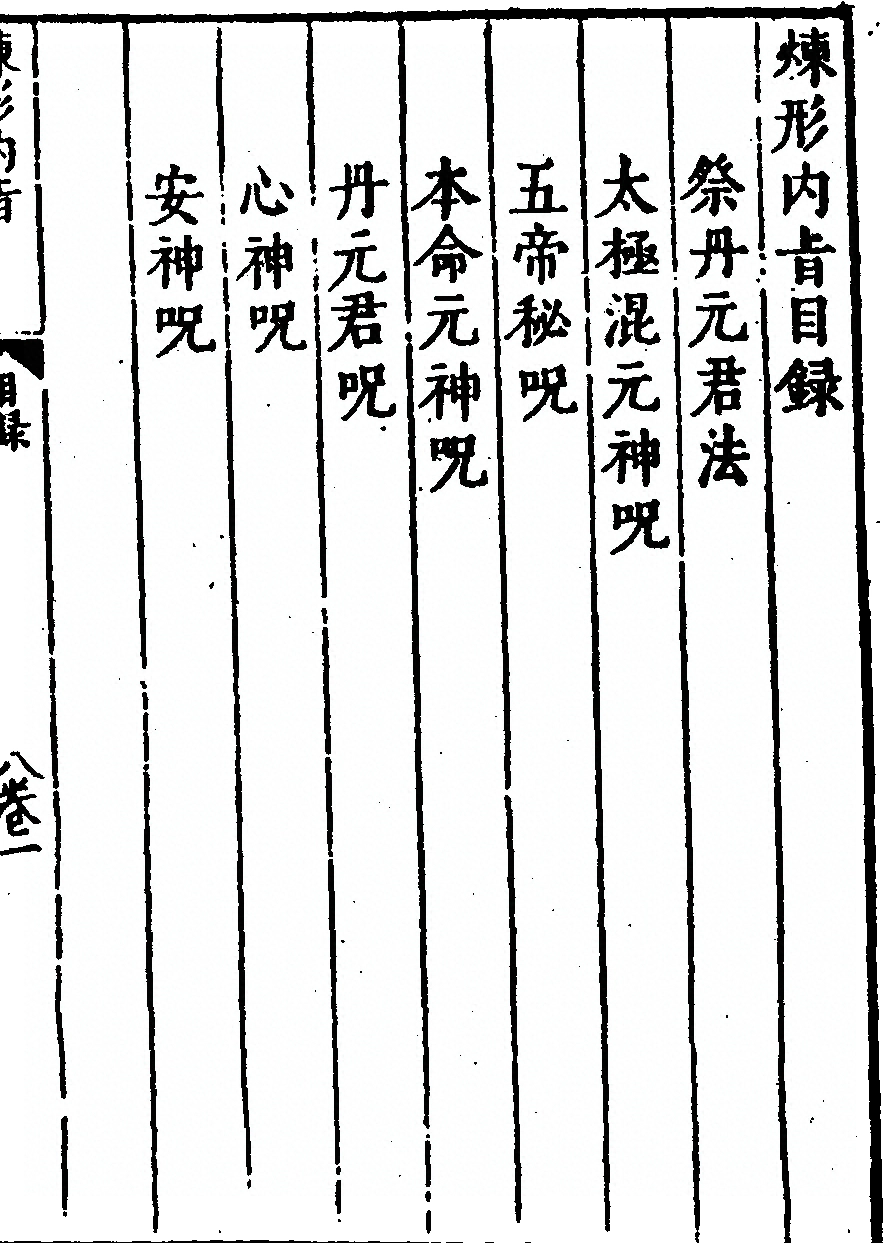 煉形内㫖目録
祭丹元君法
太極混元神呪
五帝秘呪
本命元神呪
丹元君呪
心神呪
安神呪
煉形内㫖
目録
卷一